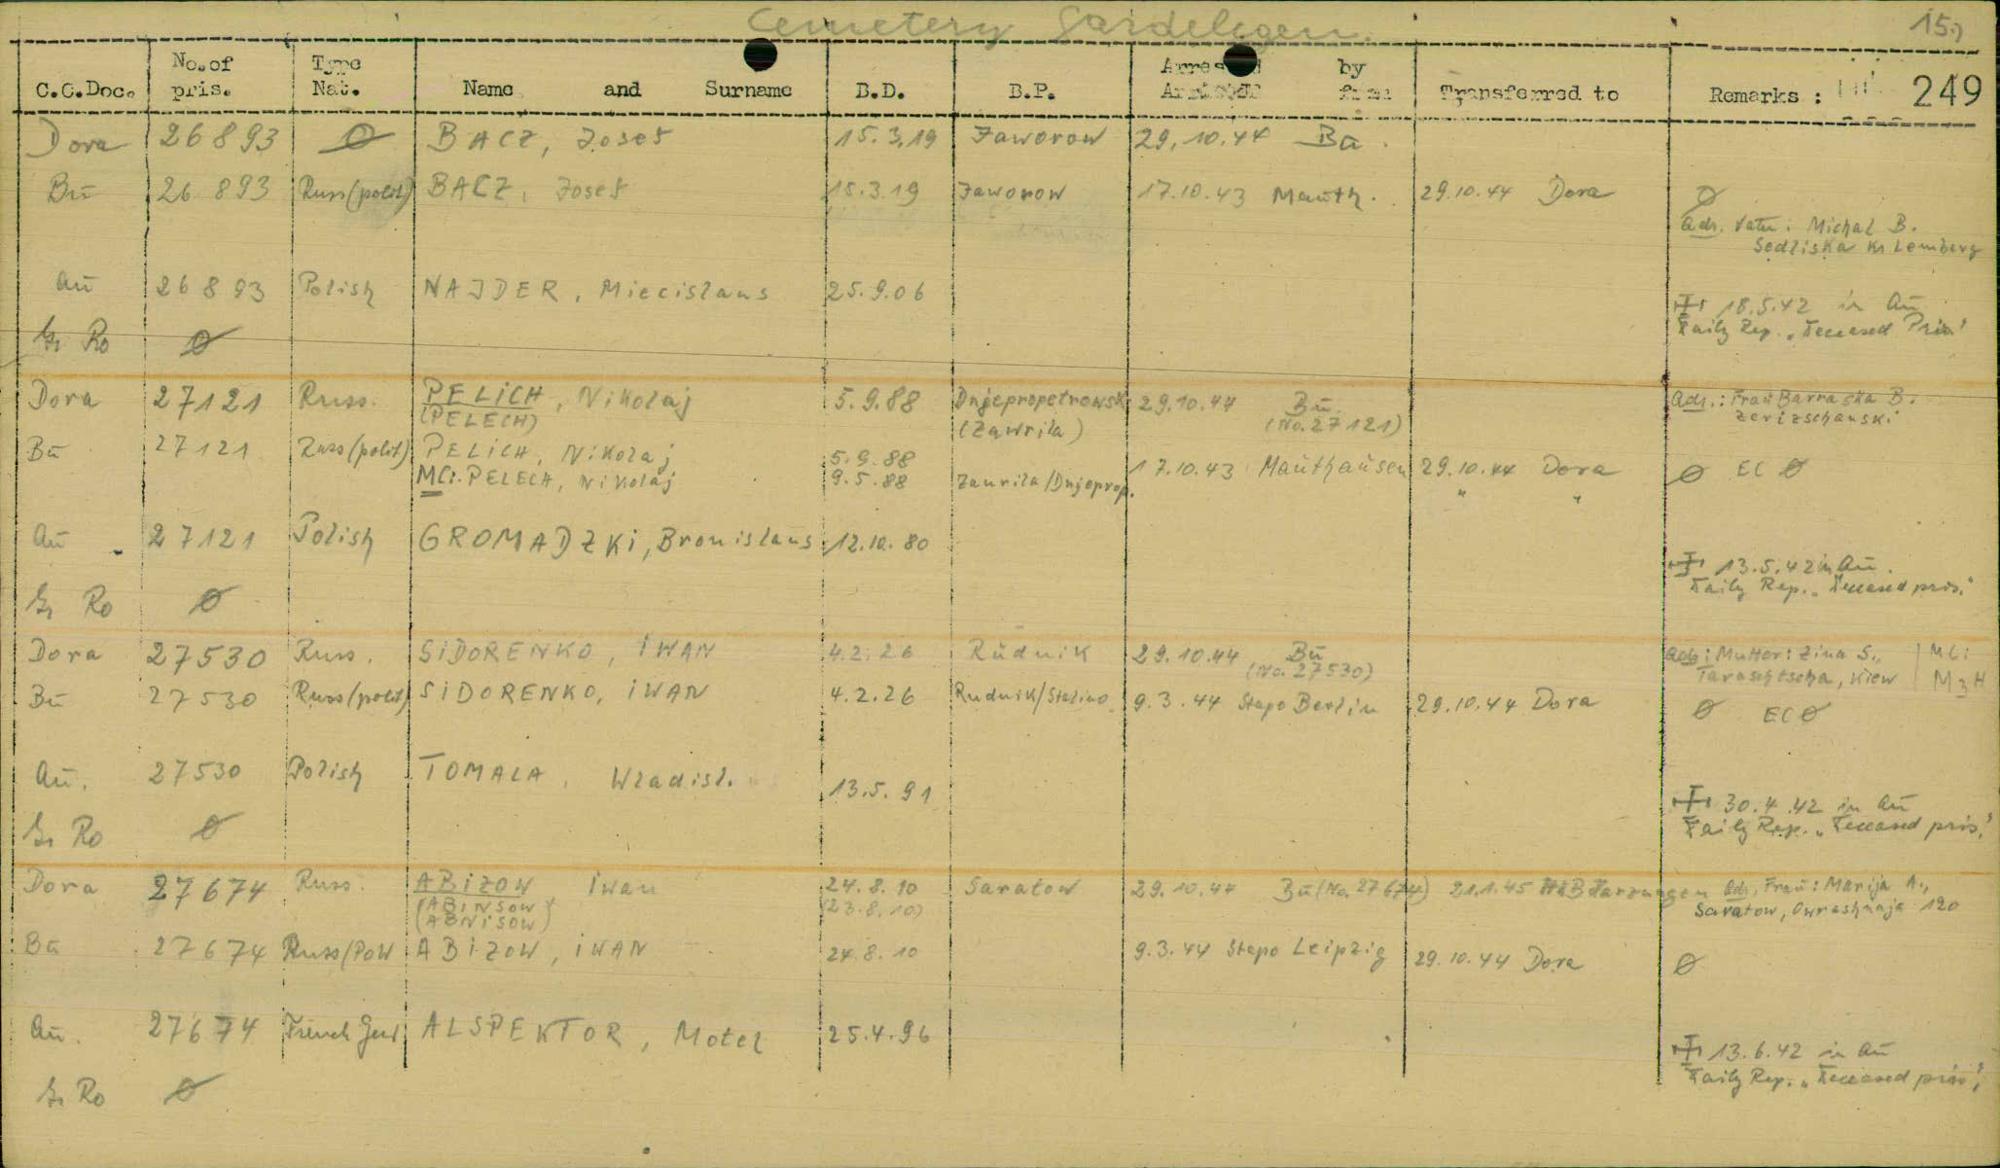 Cemetery Gardelegen.
15.)
C.C.Doc. No. of pris. Type Nat. Name and Surname B.D. B.P. Arrested by Arrived from Transferred to Remarks : 249
Dora 26893 Ø BACZ, Josef 15.3.19 Jaworow 29.10.44 Bu.
Bū 26893 Russ(polit) BACZ, Josef 15.3.19 Jaworow 17.10.43 Mauth. 29.10.44 Dora Ø
Adr. Vater: Michal B.
Sedliska Kr. Lemberg
Aū 26893 Polish NAJDER, Miecislaus 25.9.06
18.5.42 in Aū
Daily Rep. "Deceased Pris."
Gr Ro Ø
Dora 27121 Russ. PELiCH, Nikolaj 5.9.88 Dnjepropetrowsk 29.10.44 Bū Adr.: Frau Barraska B.
(PELECH) (Zawrila) (No. 27121)
Bū 27121 Russ(polit) PELiCH, Nikolaj 5.9.88 17.10.43 Mauthausen 29.10.44 Dora Ø EC Ø
MC: PELECH, Nikolaj 9.5.88 Zaurila/Dnjeprop. " "
Aū 27121 Polish GROMADZKi, Bronislaus 12.10.80
13.5.42 in Aū.
Daily Rep. "Deceased pris."
Gr Ro Ø
Dora 27530 Russ. SiDORENKO, iWAN 4.2.26 Rudnik 29.10.44 Bū Adr: Mutter: Zina S., MC:
(No. 27530) Taraschtscha, Kiew
Bū 27530 Russ(polit) SiDORENKO, iWAN 4.2.26 Rudnik/Stalino. 9.3.44 Stapo Berlin 29.10.44 Dora Ø EC Ø
Aū. 27530 Polish TOMALA, Wladisl. 13.5.91
30.4.42 in Aū
Daily Rep. "Deceased pris."
Gr Ro Ø
Dora 27674 Russ. ABiZOW iwan 24.8.10 Saratow 29.10.44 Bū (No. 27674) 21.1.45 Harzungen Adr. Frau: Marija A.,
(ABiNSOW) (23.8.10) Saratow, 120
(ABNiSOW)
Bū 27674 Russ(PoW ABiZOW, iWAN 24.8.10 9.3.44 Stapo Leipzig 29.10.44 Dora Ø
Aū. 27674 French ALSPEKTOR, Motel 25.4.96
13.6.42 in Aū
Daily Rep. "Deceased pris."
Gr Ro Ø